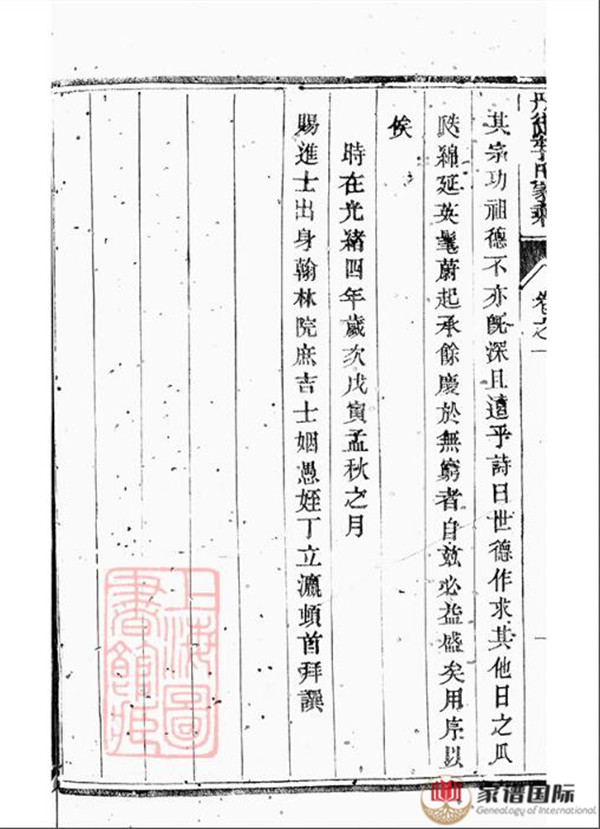 丹徒李氏家乘
卷之一
其宗功祖德不亦旣深且遠乎詩曰世德作求其他日之瓜
瓞綿延英髦蔚起承餘慶於無窮者自玆必益盛矣用序以
俟
時在光緒四年歲次戊寅孟秋之月
賜進士出身翰林院庶吉士姻愚姪丁立瀛頓首拜譔
上海圖
書館藏
家谱国际
Genealogy of International